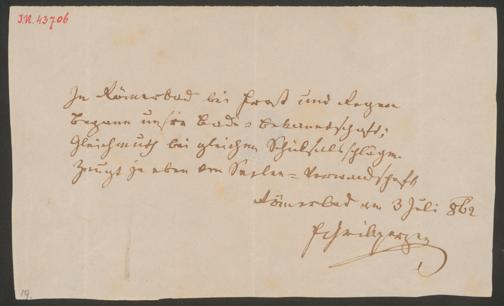 I.N. 43706
In Römerbad bei Frost und Regen
Begann unsre Bad-Bekanntschaft;
Gleichmuth bei gleichen Schicksalsschlägen
Zeugt ja eben von Seelen-Verwandschaft
Römerbad am 3 Juli 862
FGrillparzer
19.